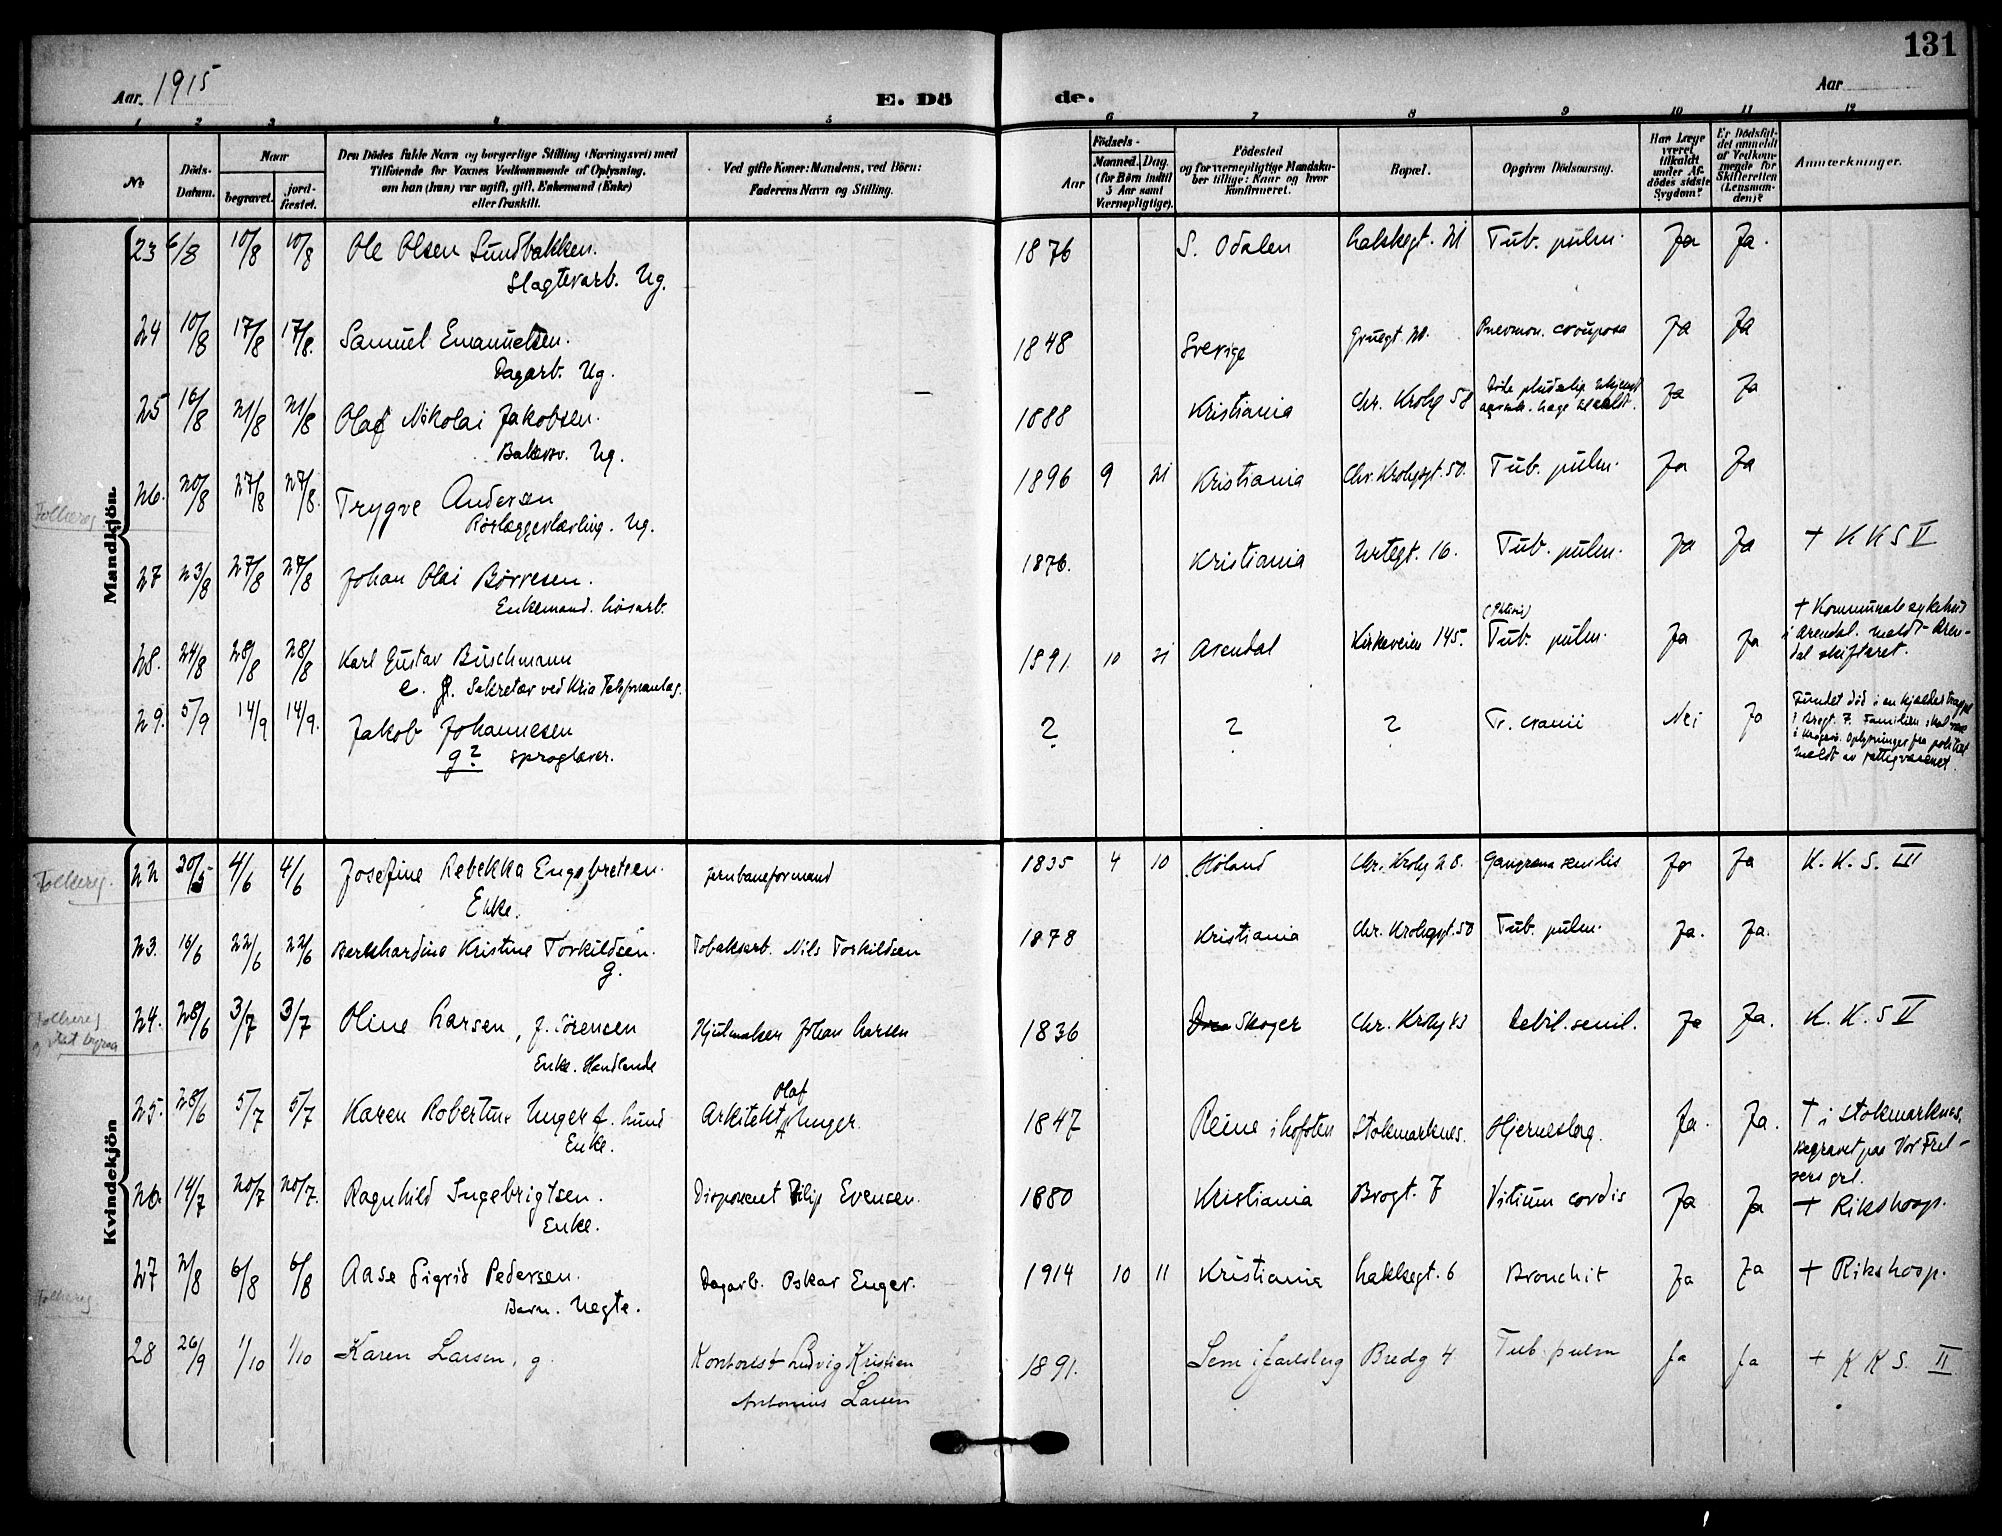 131
Aar. 1915
E. Dö
de.
Aar
1 2 3 4 5 6 7 8 9 10 11 12
No
Döds-Datum.
Naar
begravet.
jord-fæstet.
Den Dödes fulde Navn og borgerlige Stilling (Næringsvei) med
Tilföiende for Voxnes Vedkommende af Oplysning,
om han (hun) var ugift, gift, Enkemand (Enke)
eller fraskilt.
Ved gifte Koner: Mandens, ved Börn:
Faderens Navn og Stilling.
Födsels-
Aar
Maaned. Dag.
(for Börn indtil
5 Aar samt
Værnepligtige).
Födested
og for værnepligtige Mandsku-
ber tillige: Naar og hvor
konfirmeret.
Bopæl.
Opgiven Dödsaarsag.
Har Læge
været
tilkaldt
under Af-
dödes sidste
Sygdom?
Er Dödsfal-
det anmeldt
af Vedkom-
mende for
Skifteretten
(Lensman-
den)?
Anmærkninger.
Mandkjön.
23 6/8 10/8 10/8 Ole Olsen Sundbakken. 1876 S. Odalen Lakkegt. 21 Tub. pulm. Ja Ja.
Slagteriarb. Ug.
24 10/8 17/8 17/8. Samuel Emanuelsen. 1848 Sverige Gruegt. 20. Pnevmon. crouposa Ja Ja
Dagarb. Ug.
25 16/8 21/8 21/8 Olaf Nikolai Jakobsen. 1888 Kristiania Chr. Krohg 58 Døde pludselig Ja Ja
Bakersv. Ug.
26. 20/8 27/8 27/8. Trygve Andersen 1896 9 21 Kristiania Chr. Krohgsgt. 50. Tub. pulm. Ja Ja
Rørlæggerlærling. Ug.
27 23/8 27/8 27/8 Johan Olai Børresen. 1876. Kristiania Urtegt. 16. Tub. pulm. Ja Ja + K K S V
Enkemand. Løsarb.
28. 24/8 28/8 28/8 Karl Gustav Buschmann 1891. 10 21 Arendal Kirkeveien 145. (Phtisis) Tub. pulm. Ja Ja + Kommunale sykehus
i Arendal. Meldt Aren-
dal skifteret.
e. g. Sekretær ved Kria Telefonanlæg.
29. 5/9 14/9 14/9. Jakob Johannesen ? ? ? Fr. cranii Nei Ja Fundet død i en kjældertrappe
i Brogt. 7. Familien skal være
i Kragerø. Oplysninger fra politiet
Meldt av fattigvæsenet.
g? sproglærer.
Kvindekjön
Folkereg.
22 30/5 4/6 4/6 Josefine Rebekka Engebretsen. Jernbaneformand 1835 4 10 Høland Chr. Krohg 28. Gangræna senilis Ja Ja K. K. S. III
Enke.
23. 16/6 22/6 22/6 Bernhardine Kristine Torkildsen. Tobaksarb. Nils Torkildsen 1878 Kristiania Chr. Krohgsgt. 50 Tub. pulm. Ja. Ja.
g.
24. 28/6 3/7 3/7 Oline Larsen, f. Sørensen Hjulmaker Johan Larsen 1836 Skoger Chr. Krohg 43 Debil. senil. Ja Ja. K. K. S V
Enke. Handlende
25. 28/6 5/7 5/7 Karen Robertine Unger f. Lund Arkitekt Olaf Unger. 1847 Reine i Lofoten Stokmarknes. Hjerneslag. Ja. Ja. + i Stokmarknes.
Begravet paa Vor Frel-
sers grl.
Enke.
26. 14/7 20/7 20/7. Ragnhild Ingebrigtsen. Disponent Filip Evensen. 1880 Kristiania Brogt. 7 Vitium cordis Ja Ja + Rikshosp.
Enke.
27 2/8 6/8 6/8 Aase Sigrid Pedersen. Dagarb. Oskar Enger. 1914 10 11 Kristiania Lakkegt. 6 Bronchit Ja Ja + Rikshosp.
Barn. Uegte.
28 26/9 1/10 1/10 Karen Larsen, g. Kontorist Ludvig Kristian 1891. Sem i Jarlsberg Bredg 4 Tub. pulm Ja Ja + K K S. II
Antonius Larsen